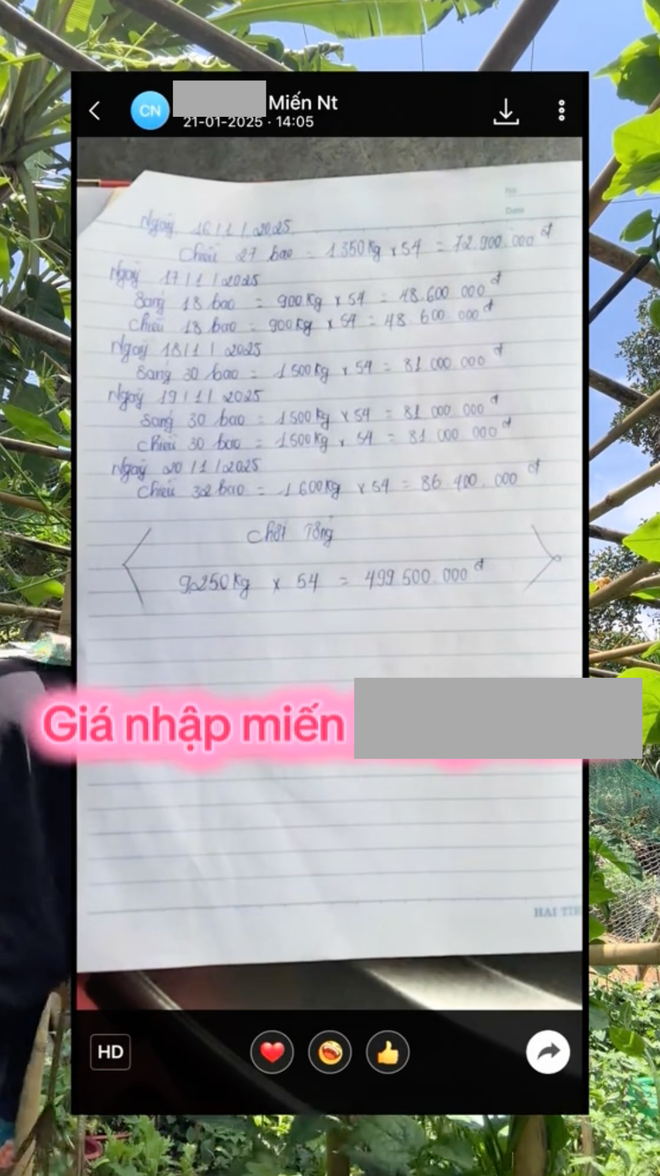 CN
Miến Nt
21-01-2025 · 14:05
No
Date
Ngày 16/1/2025
Chiều 27 bao = 1350kg x 54 = 72.900.000đ
Ngày 17/1/2025
Sáng 18 bao = 900kg x 54 = 48.600 000đ
Chiều 18 bao = 900kg x 54 = 48 600 000đ
Ngày 18/1/2025
Sáng 30 bao = 1500kg x 54 = 81 000 000đ
Ngày 19/1/2025
Sáng 30 bao = 1500kg x 54 = 81 000 000đ
Chiều 30 bao = 1500kg x 54 = 81 000 000đ
Ngày 20/1/2025
Chiều 32 bao = 1600kg x 54 = 86 400.000đ
Tổng
9250kg x 54 = 499 500.000đ
Giá nhập miến
HAI TIE
HD